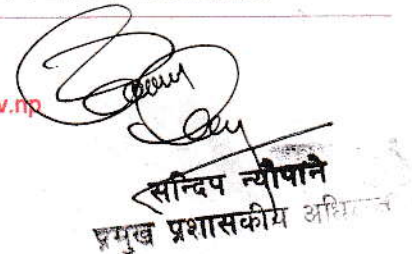 v.np
सन्दिप न्यौपाने
प्रमुख प्रशासकीय